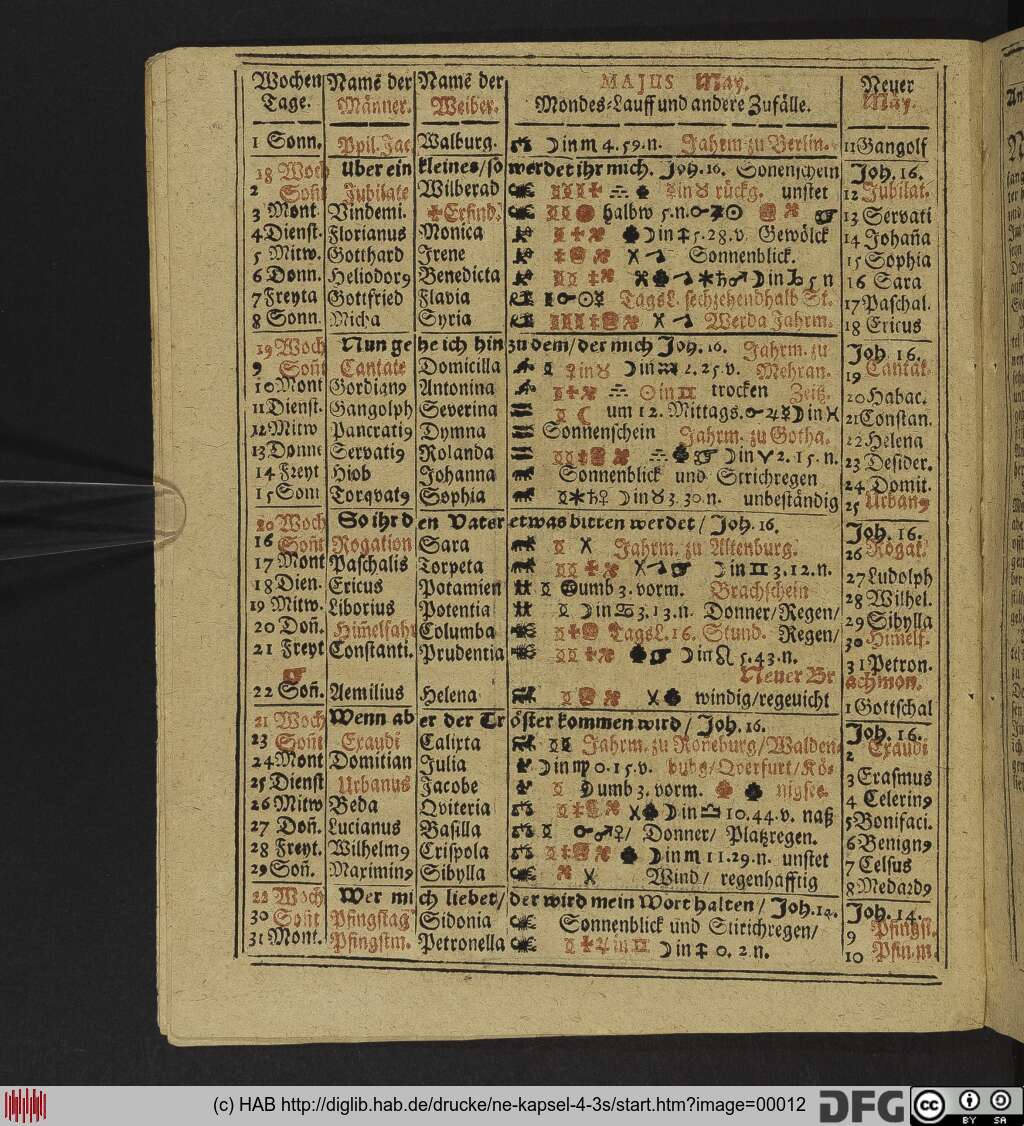 Wochen Namẽ der Namẽ der MAJUS May. Neuer
Tage. Männer. Weiber. Mondes-Lauff und andere Zufälle. May.
1 Sonn. Ppil. Jac. Walburg. ☽ in ♏ 4. 59. n. Jahrm. zu Berlin. 11 Gangolf
18 Woch Uber ein kleines/ so werdet ihr mich. Joh. 16. Sonenschein Joh. 16.
2 Soñt Jubilate Wilberad ☿ in ♉ rückg. unstet 12 Jubilat.
3 Mont. Vindemi. Erfind. halbw 5. n. 13 Servati
4 Dienst. Florianus Monica ☽ in ♐ 5. 28. v. Gewölck 14 Johaña
5 Mitw. Gotthard Irene Sonnenblick. 15 Sophia
6 Donn. Heliodor9 Benedicta ☽ in ♑ 5 n 16 Sara
7 Freyta Gottfried Flavia TagsL. sechzehendhalb St. 17 Paschal.
8 Sonn. Micha Syria Werda Jahrm. 18 Ericus
19 Woch Nun gehe ich hin zu dem/ der mich Joh. 16. Jahrm. zu Joh. 16.
9 Soñt Cantate Domicilla ☿ in ♉ ☽ in ♒ 2. 25. v. Mehran. 19 Cantat.
10 Mont Gordian9 Antonina ☉ in ♊ trocken Zeitz. 20 Habac.
11 Dienst. Gangolph Severina um 12. Mittags. ☽ in ♓ 21 Constan.
12 Mitw Pancrati9 Dymna Sonnenschein Jahrm. zu Gotha. 22 Helena
13 Donne Servati9 Rolanda ☽ in ♈ 2. 15. n. 23 Desider.
14 Freyt Hiob Johanna Sonnenblick und Strichregen 24 Domit.
15 Sonn Torqvat9 Sophia ☽ in ♉ 3. 30. n. unbeständig 25 Urban9
20 Woch So ihr den Vater etwas bitten werdet/ Joh. 16. Joh. 16.
16 Soñt Rogation Sara Jahrm. zu Altenburg. 26 Rogat.
17 Mont Paschalis Torpeta ☽ in ♊ 3. 12. n. 27 Ludolph
18 Dien. Ericus Potamien umb 3. vorm. Brachschein 28 Wilhel.
19 Mitw. Liborius Potentia ☽ in ♋ 3. 13. n. Donner/ Regen/ 29 Sibylla
20 Doñ. Him̃elfahr Columba TagsL. 16. Stund. Regen/ 30 Himelf.
21 Freyt Constanti. Prudentia ☽ in ♌ 5. 43. n. 31 Petron.
Neuer Brachmon.
22 Soñ. Aemilius Helena windig/ regeuicht 1 Gottschal
21 Woch Wenn aber der Tröster kommen wird/ Joh. 16. Joh. 16.
23 Soñt Exaudi Calixta Jahrm. zu Roneburg/ Walden- 2 Exaudi
24 Mont Domitian Julia ☽ in ♍ 0. 15. v. burg/ Qverfurt/ Kö- 3 Erasmus
25 Dienst Urbanus Jacobe umb 3. vorm. nigsee. 4 Celerin9
26 Mitw Beda Qviteria ☽ in ♎ 10. 44. v. naß 5 Bonifaci.
27 Doñ. Lucianus Basilla ♂ ♀/ Donner/ Platzregen. 6 Benign9
28 Freyt. Wilhelm9 Crispola ☽ in ♏ 11. 29. n. unstet 7 Celsus
29 Soñ. Maximin9 Sibylla Wind/ regenhafftig 8 Medard9
22 Woch Wer mich liebet/ der wird mein Wort halten/ Joh. 14. Joh. 14.
30 Soñt Pfingstag Sidonia Sonnenblick und Strichregen/ 9 Pfingst.
31 Mont. Pfingstm. Petronella ♃ in ♊ ☽ in ♐ 0. 2. n. 10 Pfin. m.
(c) HAB http://diglib.hab.de/drucke/ne-kapsel-4-3s/start.htm?image=00012 DFG cc BY SA